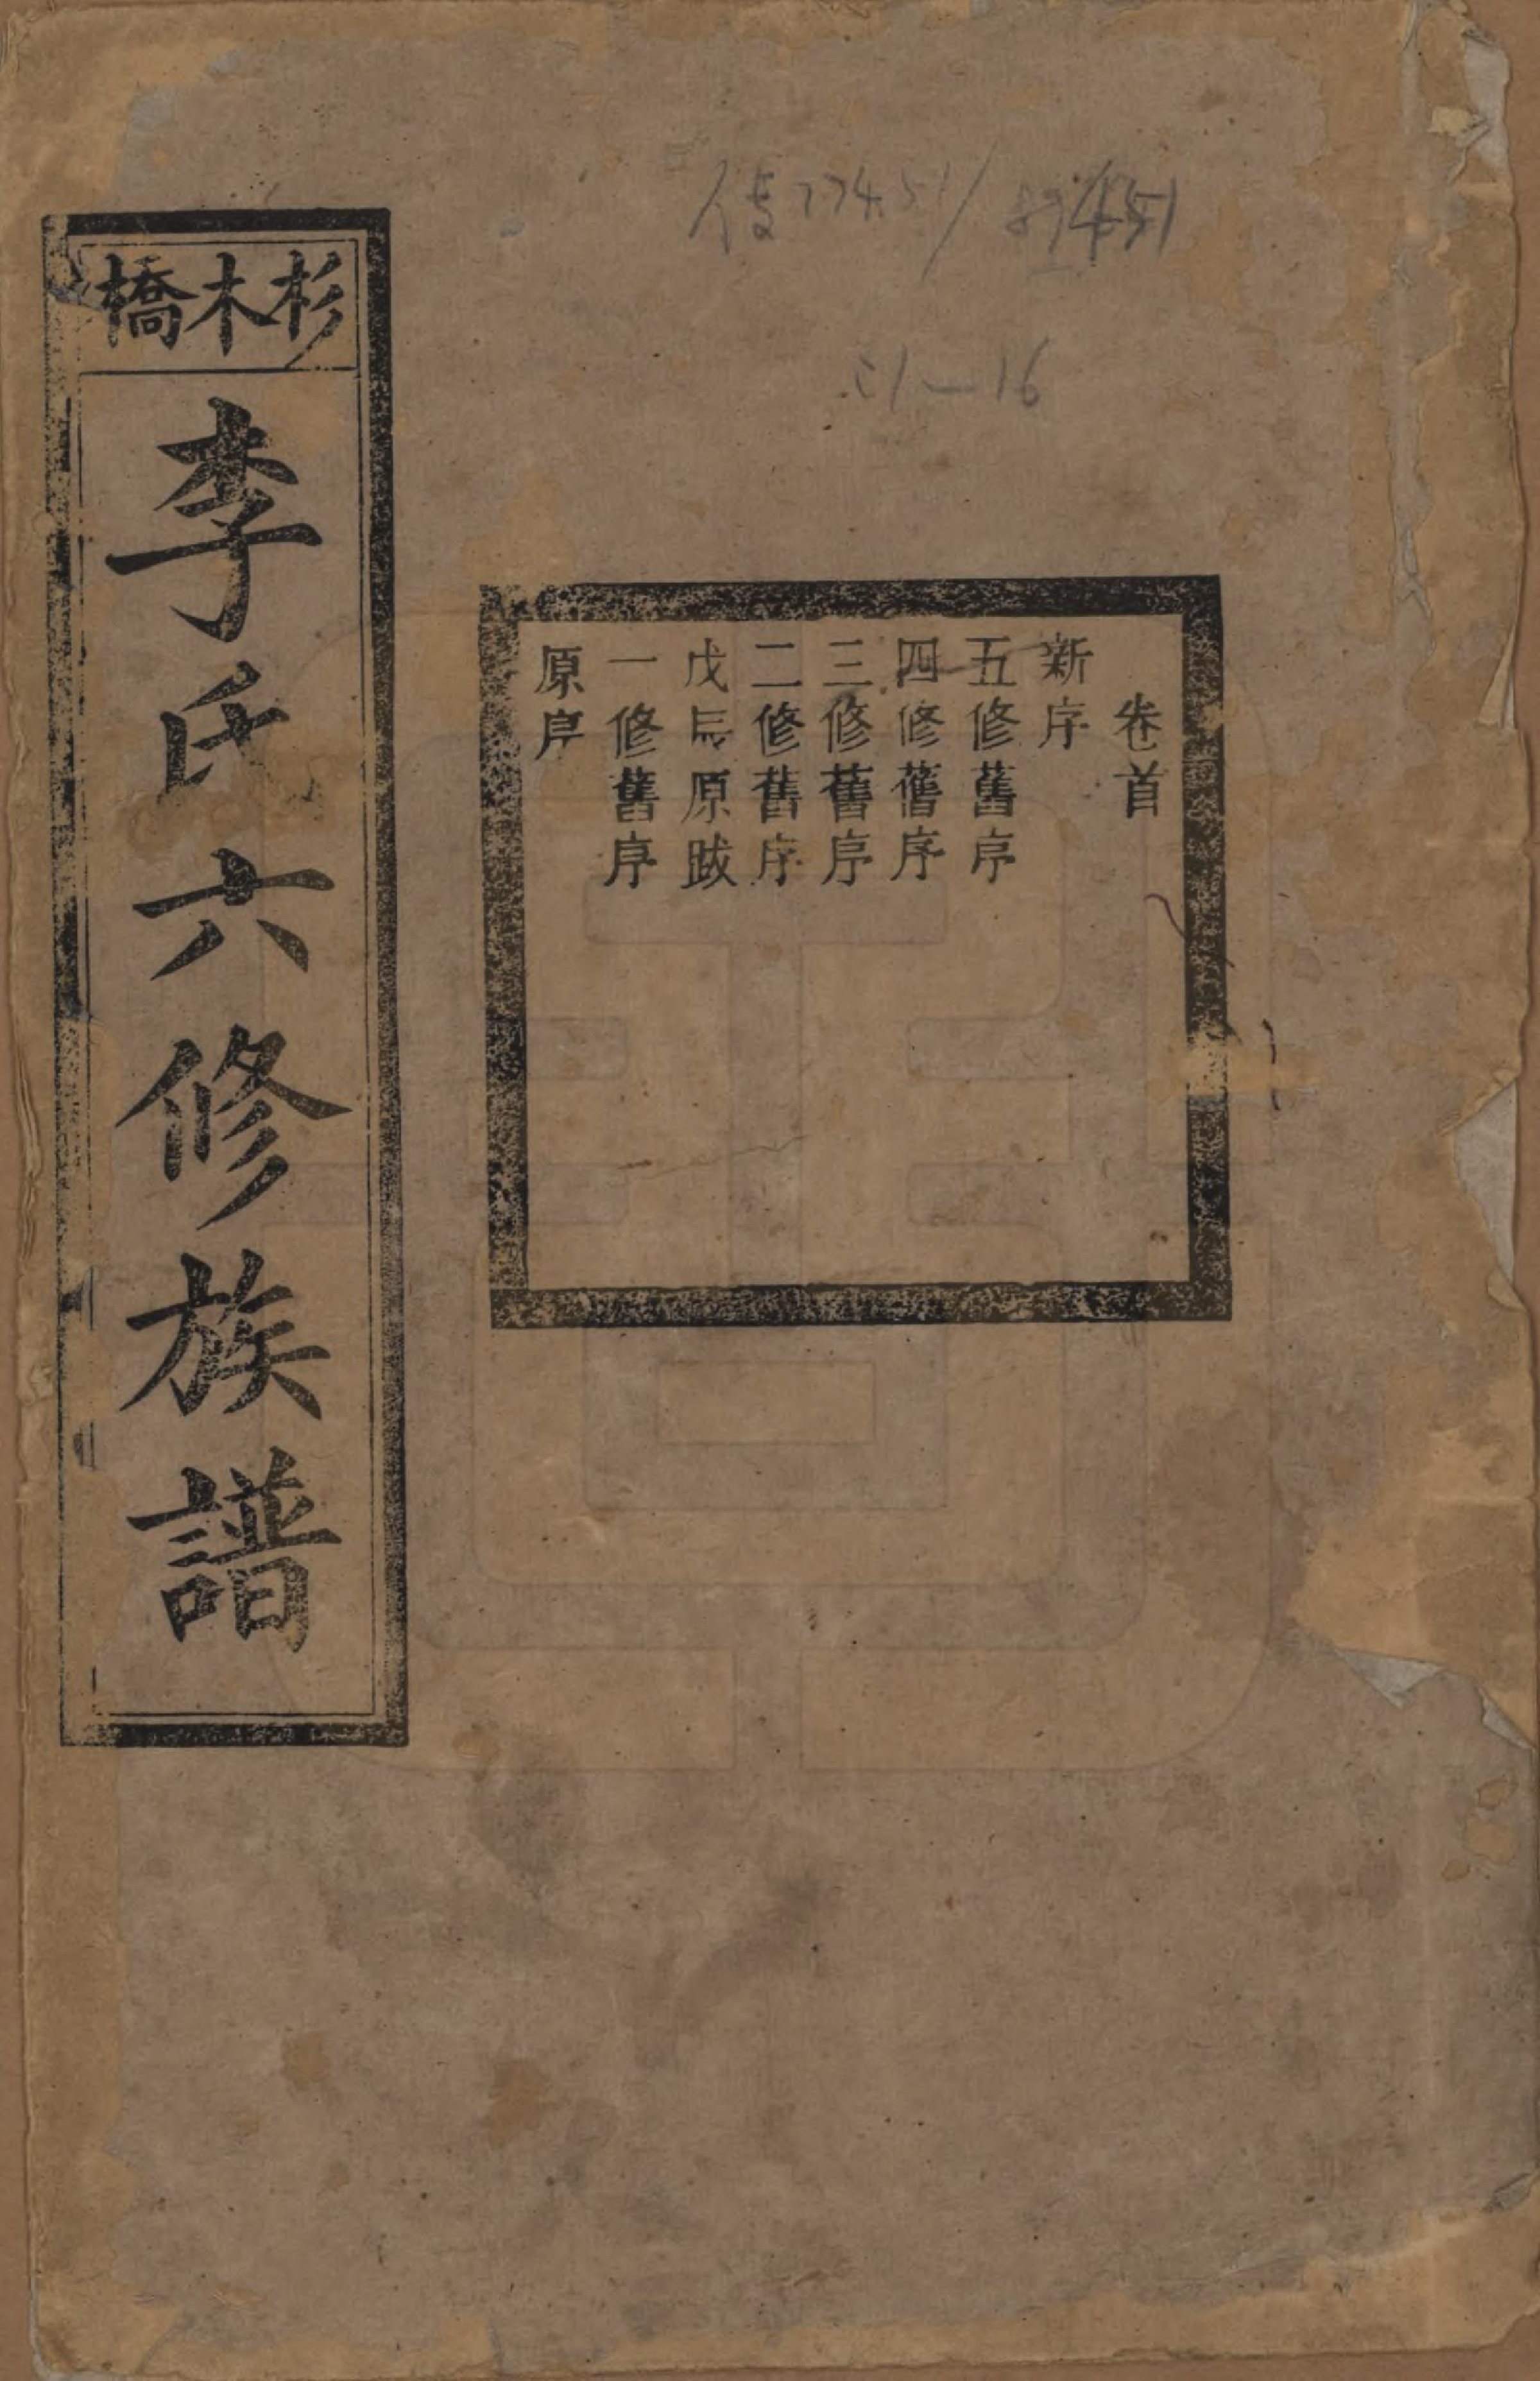 杉木橋
李氏六修族譜
卷首
新序
五修舊序
四修舊序
三修舊序
二修舊序
戊辰原跋
一修舊序
原序
1—16